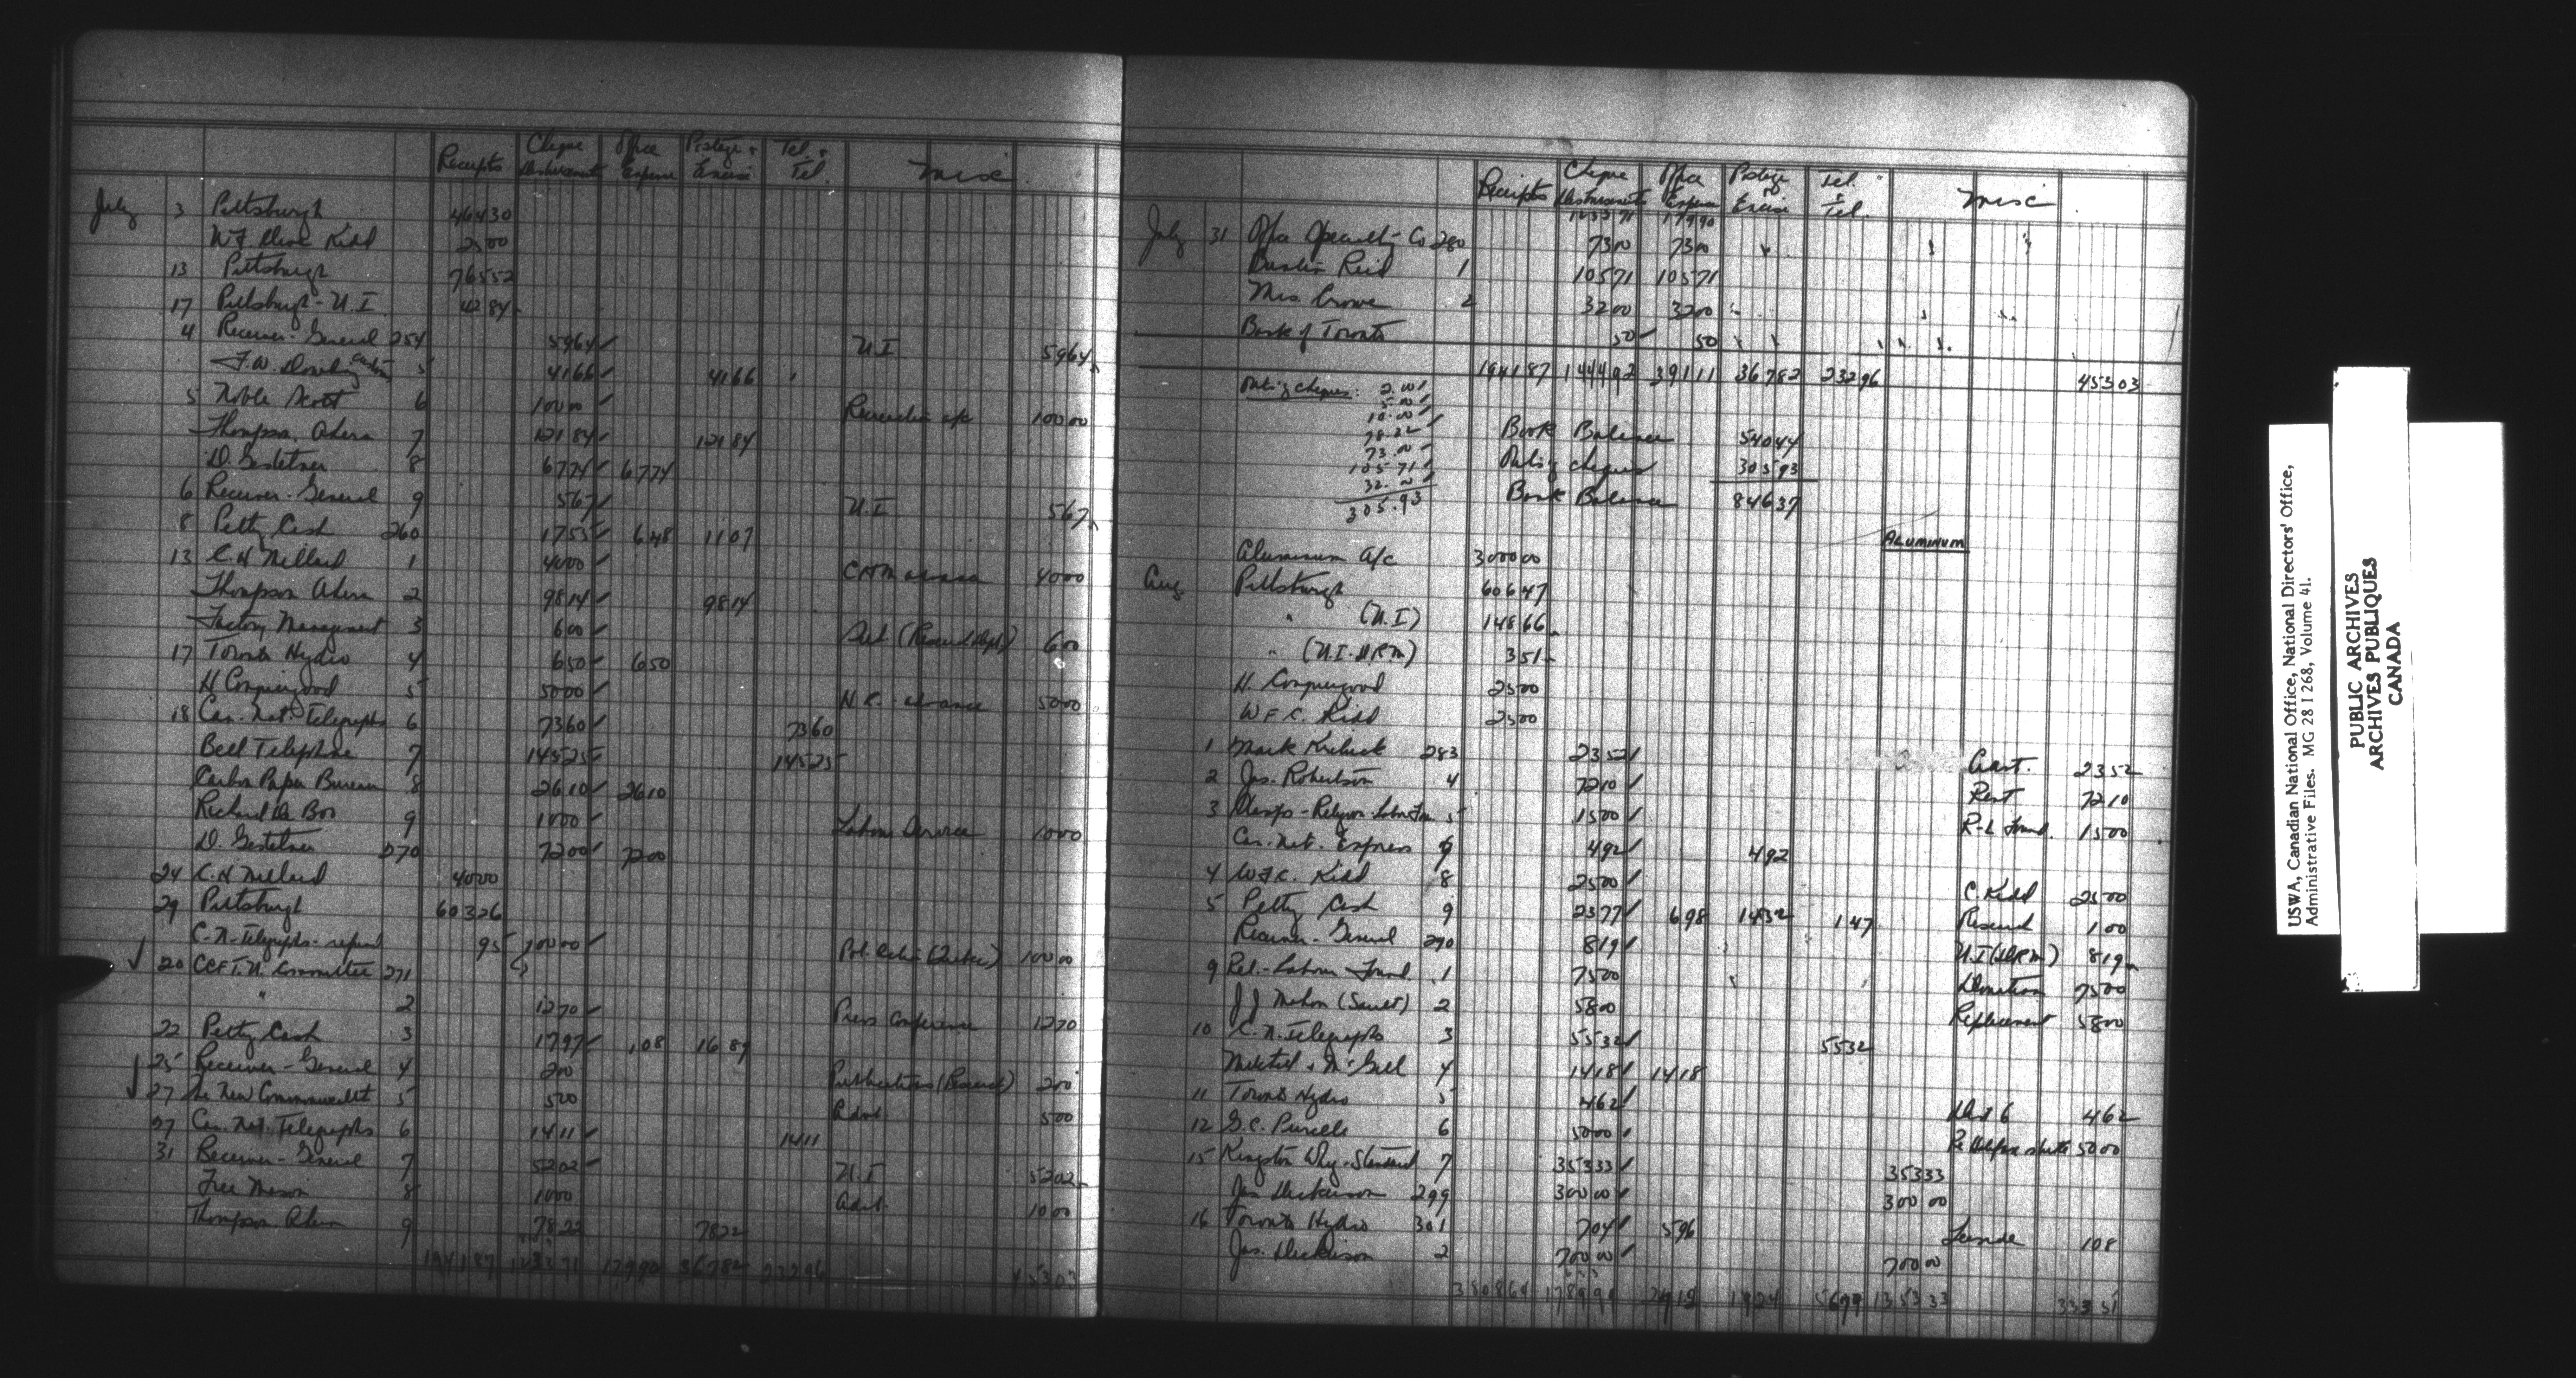 Receipts Cheque Disbursements Office Expense Postage & Excise Tel. & Tel. Misc.
July 3 Pittsburgh 464 30
W F Clive Kidd 25 00
13 Pittsburgh 765 52
17 Pittsburgh - U.I. 42 84
4 Receiver-General 254 59 64 U I 59 64
F.W. Dowling Custom 5 41 66 41 66
5 Noble Scott 6 100 00 a/c 100 00
Thompson, Ahern 7 121 84 121 84
D. Gestetner 8 67 74 67 74
6 Receiver-General 9 5 67 U.I 5 67
8 Petty Cash 260 17 55 6 48 11 07
13 C. H Millard 1 40 00 CHM advance 40 00
Thompson Ahern 2 98 14 98 14
Factory Management 3 6 00 (Research Dept) 6 00
17 Toronto Hydro 4 6 50 6 50
H Conquergood 5 50 00 H C. - advance 50 00
18 Can. Nat. Telegraphs 6 73 60 73 60
Bell Telephone 7 145 25 145 25
Carbon Paper Bureau 8 26 10 26 10
Richard De Boo 9 10 00 Labour Service 10 00
D. Gestetner 270 72 00 72 00
24 C. H Millard 40 00
29 Pittsburgh 603 26
C-N-Telegraphs - refund 95
20 CCF T.U. Committee 271 100 00 Pol. Action (Quebec) 100 00
" 2 12 70 Press Conference 12 70
22 Petty Cash 3 17 97 1 08 16 89
25 Receiver-General 4 2 00 Publications (Research) 2 00
27 The New Commonwealth 5 5 00 Advt. 5 00
27 Can. Nat. Telegraphs 6 14 11 14 11
31 Receiver-General 7 52 02 U.I 52 02
Free Mason 8 10 00 advt. 10 00
Thompson Ahern 9 78 22 78 22
1941 87 1233 71 179 90 367 82 232 96 453 03
Receipts Cheque Disbursements Office Expense Postage & Excise Tel. & Tel. Misc.
1233 71 179 90
July 31 Office Specialty Co 280 73 00 73 00
Reid 1 105 71 105 71
Mrs. Crowe 2 32 00 32 00
Bank of Toronto 50 50
1941 87 1444 92 391 11 367 82 232 96 453 03
Outs'g cheques: 2.00
5.00
10.00
78.22
73.00
105.71
32.00
305.93
Book Balance 540 44
Outs'g cheques 305 93
Bank Balance 846 37
ALUMINUM
Aluminum a/c 3000 00
Aug. Pittsburgh 606 47
" (U.I) 148 66
" (U.I. - DRM) 3 51
H. Conquergood 25 00
W F C. Kidd 25 00
1 Mark 283 23 52 23 52
2 Jas. Robertson 4 72 10 Rent 72 10
3 Religion-Labor Fdn 5 15 00 R-L Found. 15 00
Can. Nat. Express 4 92 4 92
4 W F C. Kidd 8 25 00 C. Kidd 25 00
5 Petty Cash 9 23 77 6 98 14 32 1 47 Research 1 00
Receiver-General 290 8 19 U.I (DRM) 8 19
9 Rel.-Labour Found. 1 75 00 Donation 75 00
J J Mahon (Sault) 2 58 00 Replacement 58 00
10 C. N. Telegraphs 3 55 32 55 32
Mitchell & McGill 4 14 18 14 18
11 Toronto Hydro 5 4 62 Dist 6 4 62
12 G. C. Purcell 6 50 00 Re Halifax 50 00
15 Kingston Whig-Standard 7 353 33 353 33
Jas Dickerson 299 300 00 300 00
16 Toronto Hydro 301 7 04 5 96 1 08
Jas. Dickison 2 700 00 700 00
USWA, Canadian National Office, National Directors' Office,
Administrative Files. MG 28 I 268, Volume 41.
PUBLIC ARCHIVES
ARCHIVES PUBLIQUES
CANADA